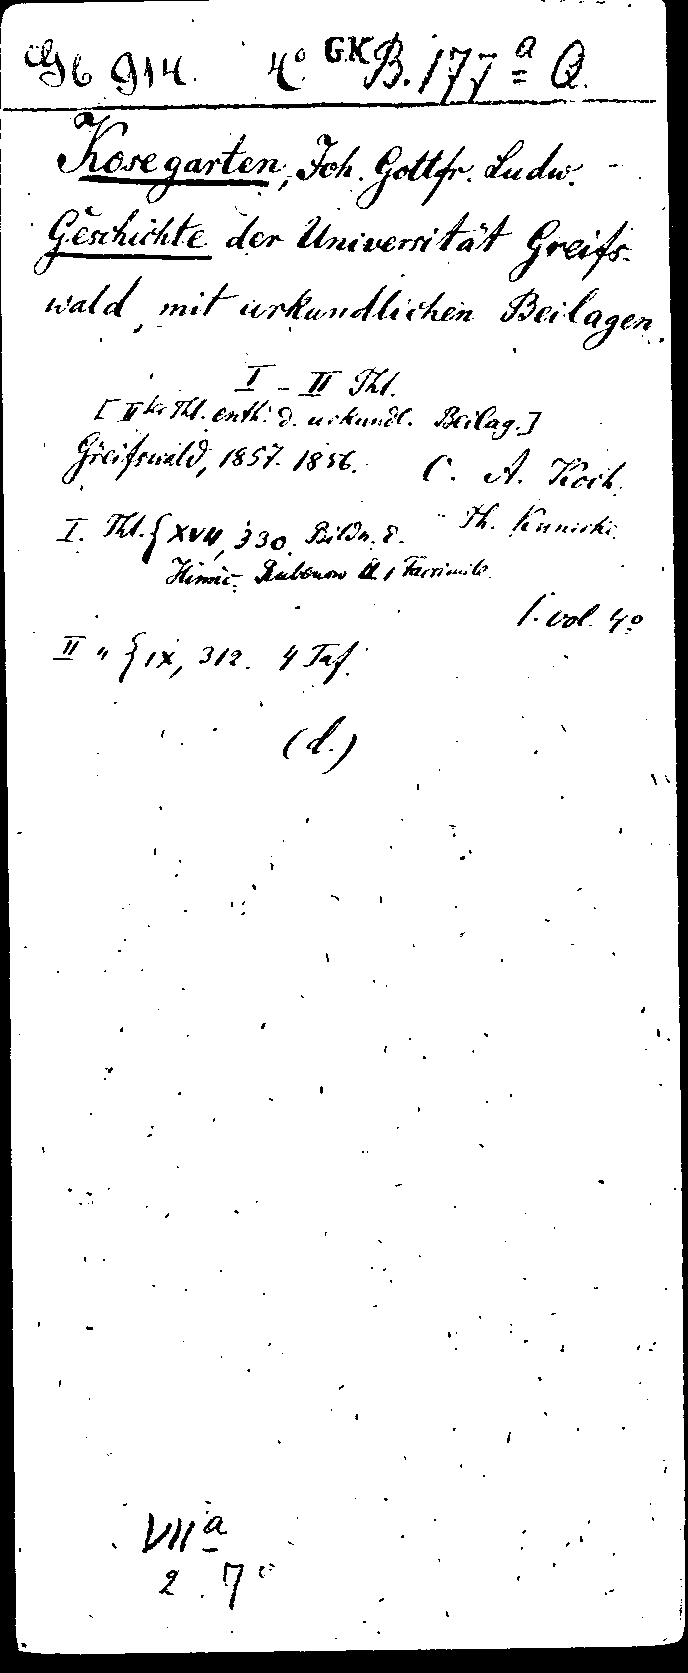 Gb 914. 4° GK B. 177 a Q.
Kosegarten, Joh. Gottfr. Ludw.
Geschichte der Universität Greifs-
wald, mit urkundlichen Beilagen.
I - II Thl.
[IIter Thl. enth. d. urkundl. Beilag.]
Greifswald, 1857. 1856. C. A. Koch.
Th. Kunicke.
I. Thl. { XVII, 330. Bildn. d.
Heinr. Rubenow u. 1 Facsimile.
1. vol. 4°
II " { IX, 312. 4 Taf.
(d.)
VII a
2. 7°